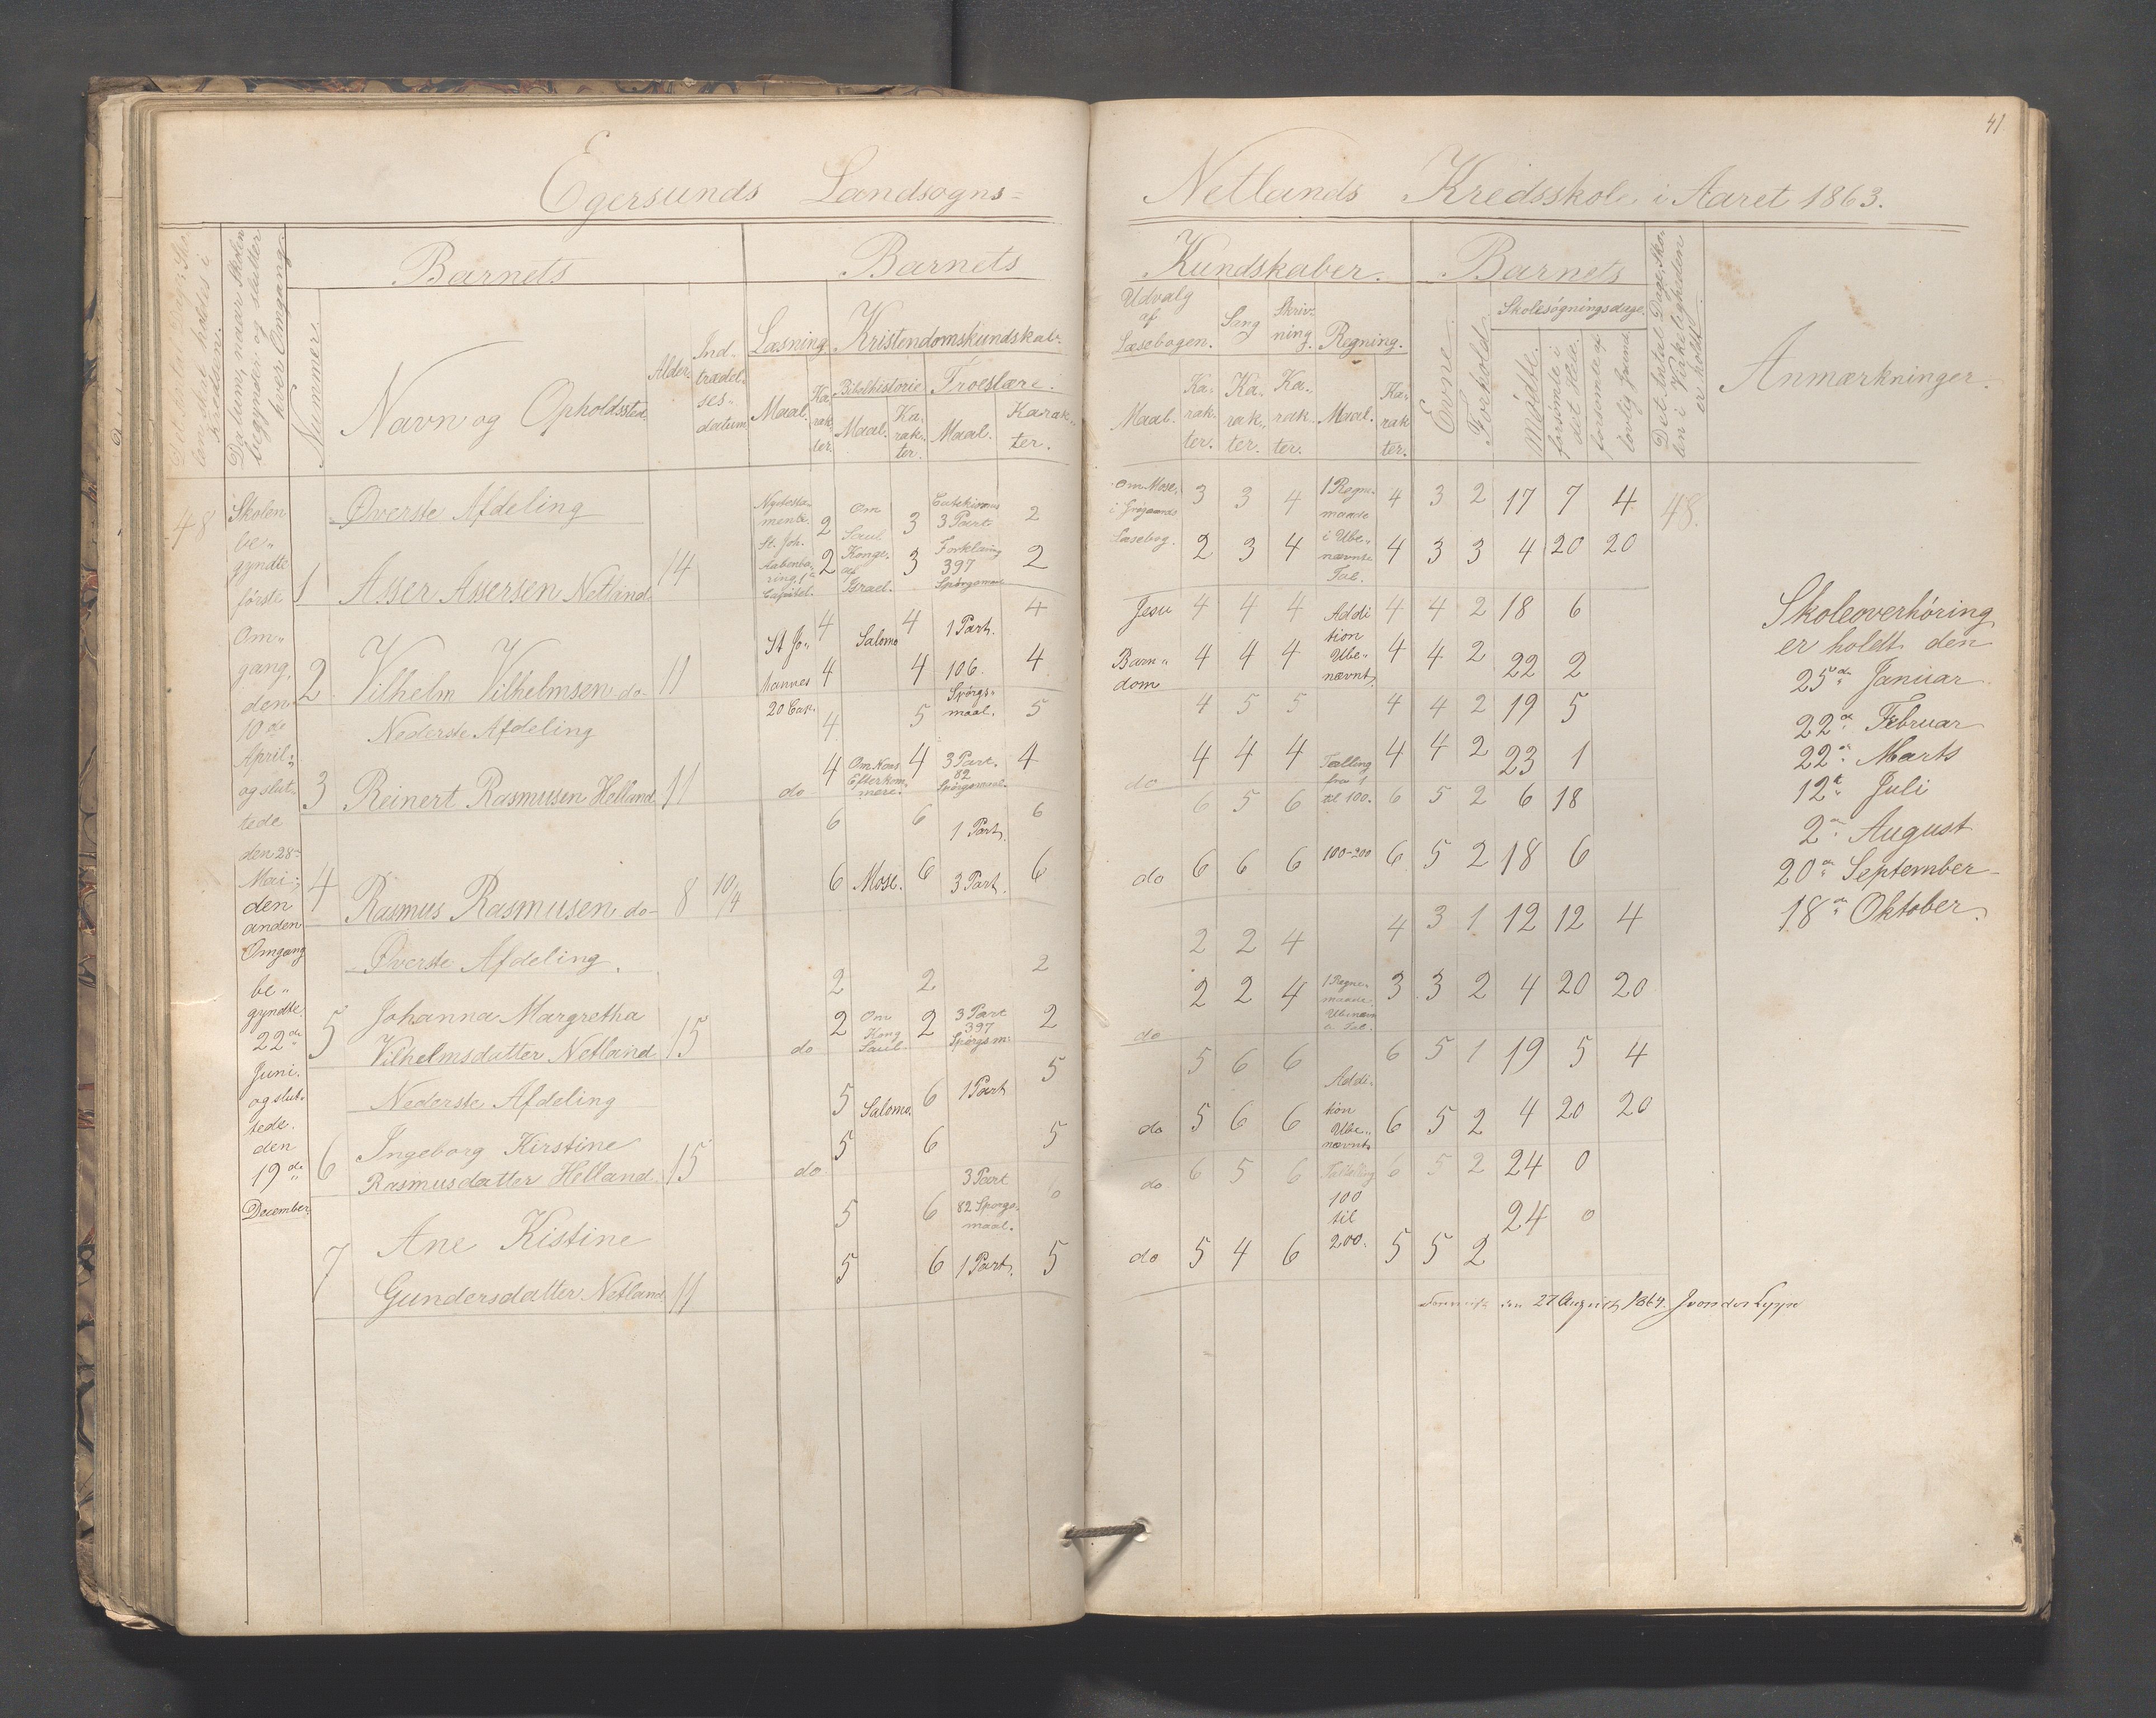 41
Egersunds Landsogns=
Netlands Kredsskole i Aaret 1863.
Datum, naar Skolen
begynder og slutter
hver Omgang.
Nummer.
Barnets
Navn og Opholdssted
Alder.
Ind-
trædel-
ses-
datum.
Barnets
Læsning
Kristendomskundskab.
Maal.
Ka-
rak-
ter.
Bibelhistorie
Maal.
Ka-
rak-
ter.
Troeslære.
Maal.
Karak-
ter.
Kundskaber.
Udvalg
af
Læsebogen.
Maal.
Ka-
rak-
ter.
Sang
Ka-
rak-
ter.
Skriv-
ning.
Ka-
rak-
ter.
Regning.
Maal.
Ka-
rak-
ter.
Barnets
Evne.
Forhold.
Skolesøgningsdage.
mødte.
forsømte i
det Hele.
forsømte af
lovlig Grund.
Det Antal Dage, Sko-
len i Virkeligheden
er holdt.
Anmærkninger.
48
Skolen
be-
gyndte
første
Om-
gang,
den
10de
April;
og slut-
tede
den 28
Mai;
den
anden
Omgang
be-
gyndte
22de
Juni.
og slut-
tede.
den
19de
December.
Øverste Afdeling
1 Asser Assersen Netland 14
2 Vilhelm Vilhelmsen do 11
Nederste Afdeling
3 Reinert Rasmusen Helland 11
4 Rasmus Rasmusen do 8 10/4
Øverste Afdeling.
5 Johanna Margretha
Vilhelmsdatter Netland 15
Nederste Afdeling
6 Ingeborg Kirstine
Rasmusdatter Helland 15
7 Ane Kistine
Gundersdatter Netland 11
Nytesta-
mente.
St. Joh.
Aabenba-
ring 1
Capitel.
2 Om 3 3 Part 2
Saul
2 Konge 3 Forklaring 2
af 397
Israel. Spörgsmaal
St Jo- 4 Salomo 4 1 Part. 4
hannes 4 4 106. 4
20 Cap. Spörgs-
maal.
4 5 5
do 4 Om Noas 4 3 Part. 4
Efterkom- 82
mere. Spörgsmaal.
6 6 1 Part. 6
6 Mose. 6 3 Part. 6
2 2 2
do 2 Om 2 3 Part 2
Kong 397
Saul Spörgsm.
5 Salomo 6 1 Part 5
do 5 6 5
5 6 3 Part 6
82 Spörgs-
maal.
5 6 1 Part. 5
Om Mose, 3 3 4 1 Regne- 4 3 2 17 7 4 48.
maade
Læsebog. 2 3 4 i Ube- 4 3 3 4 20 20
nævnte
Tal.
Jesu 4 4 4 Addi 4 4 2 18 6
tion
Barn- 4 4 4 Ube- 4 4 2 22 2
dom nævnt
4 5 5 4 4 2 19 5
do 4 4 4 Tælling 4 4 2 23 1
fra 1
6 5 6 til 100. 6 5 2 6 18
do 6 6 6 100-200 6 5 2 18 6
2 2 4 4 3 1 12 12 4
do 2 2 4 1 Regne- 3 3 2 4 20 20
maade
5 6 6 6 5 1 19 5 4
Addi-
do 5 6 6 tion 6 5 2 4 20 20
Ube-
nævnt
do 6 5 6 Tælling 6 5 2 24 0
100
til 24 0
do 5 4 6 200. 5 5 2
Skoleoverhöring
er holdt den
25de Januar
22de Februar
22de Marts
12te Juli
2den August
20de September
18de Oktober.
den 27 August 1864. J von der Lippe